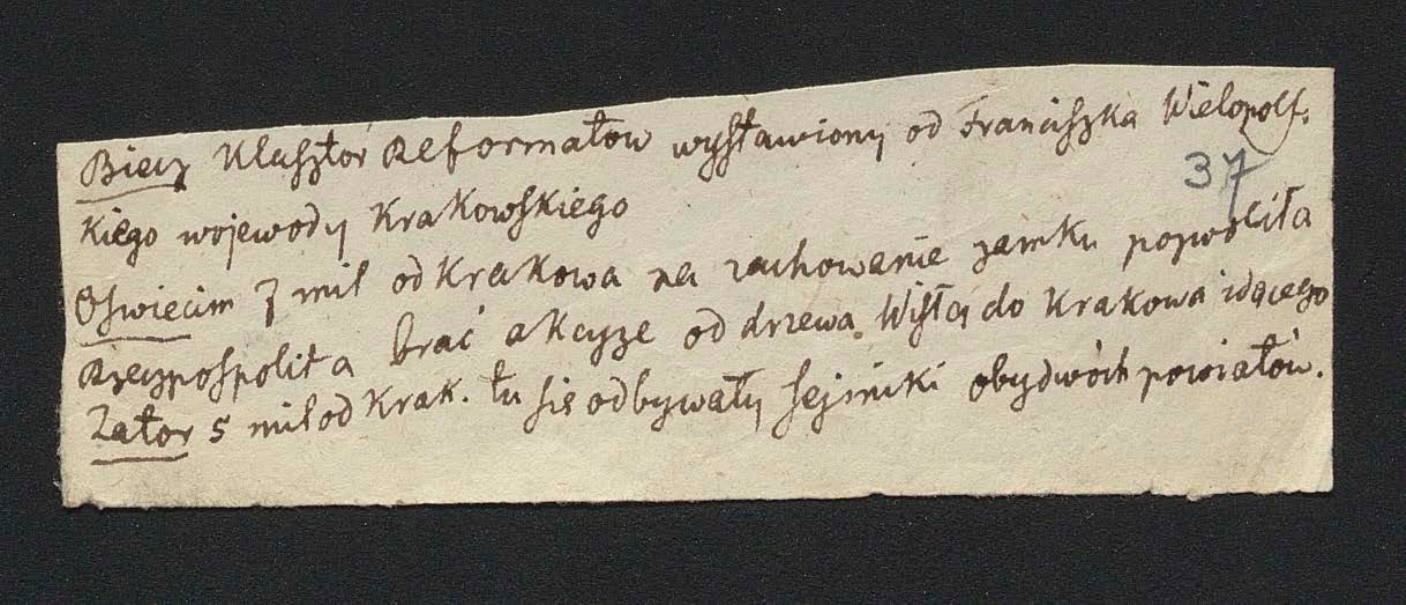 Biecz Klasztor Reformatow wystawiony od Franciszka Wielopols.
37
kiego wojewody Krakowskiego
Oswiecim 7 mil od Krakowa na zachowanie zamku pozwoliła
Rzeczpospolita brać akcyze od drzewa Wisłą do Krakowa idącego
Zator 5 mil od Krak. tu sie odbywały sejmiki obydwóch powiatów.